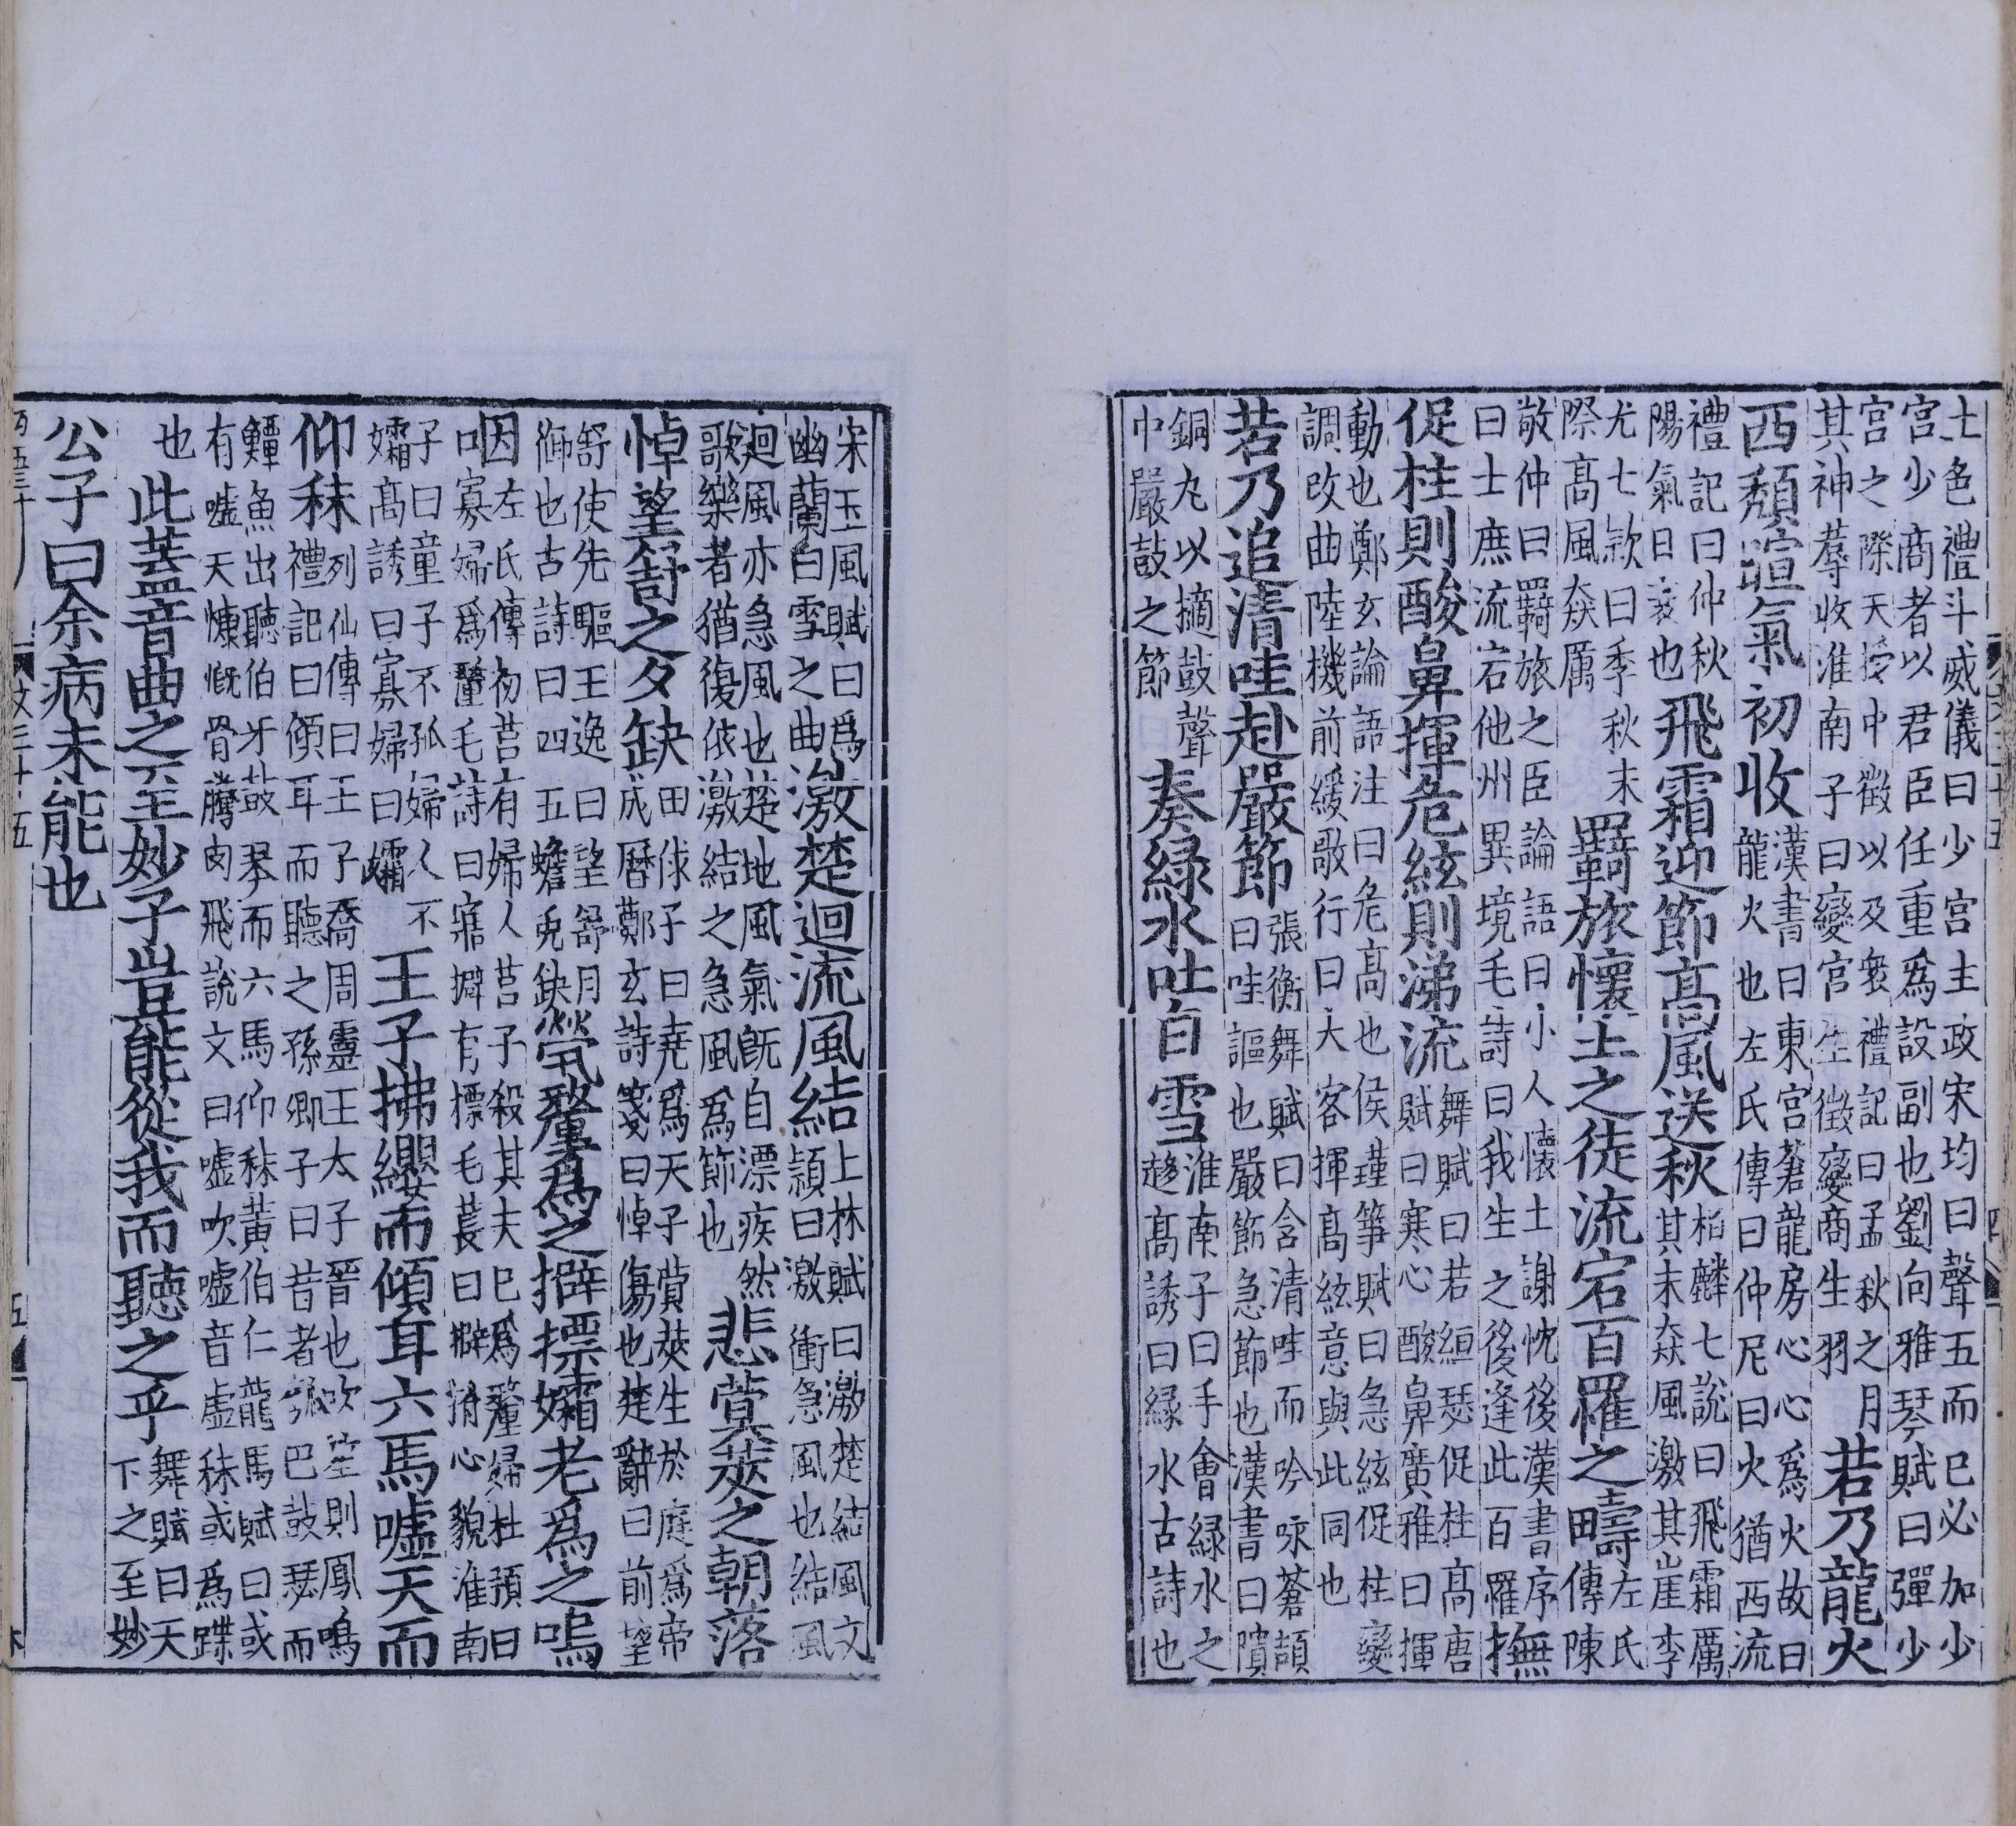 七色禮斗威儀曰少宮主政宋均曰聲五而已必加少
宮少商者以君臣任重爲設副也劉向雅琴賦曰彈少
宮之際天授中徵以及衆禮記曰孟秋之月
其神蓐收淮南子曰變宮生徵變商生羽
若乃龍火
西頹暄氣初收
漢書曰東宮蒼龍房心心爲火故曰
龍火也左氏傳曰仲尼曰火猶西流
禮記曰仲秋
陽氣日衰也
飛霜迎節高風送秋
栢麟七說曰飛霜厲
其末猋風激其崖李
尤七款曰季秋末
際高風猋厲
羇旅懷土之徒流宕百罹之疇
左氏
傳陳
敬仲曰羇旅之臣論語曰小人懷土謝忱後漢書序
曰士庶流宕他州異境毛詩曰我生之後逢此百罹
撫
促柱則酸鼻揮危絃則涕流
舞賦曰若絙瑟促柱高唐
賦曰寒心酸鼻廣雅曰揮
動也鄭玄論語注曰危高也侯瑾筝賦曰急絃促柱變
調改曲陸機前緩歌行曰大客揮高絃意與此同也
若乃追清哇赴嚴節
張衡舞賦曰含清哇而吟咏蒼頡
曰哇謳也嚴節急節也漢書曰隤
銅丸以擿鼓聲
中嚴鼓之節
奏緑水吐白雪
淮南子曰手會緑水之
趍高誘曰緑水古詩也
宋玉風賦曰爲
幽蘭白雪之曲
激楚迴流風結
上林賦曰激楚結風文
潁曰激衝急風也結風
迴風亦急風也楚地風氣既自漂疾然
歌樂者猶復依激結之急風爲節也
悲蓂莢之朝落
悼望舒之夕缺
田俅子曰堯爲天子蓂莢生於庭爲帝
成曆鄭玄詩箋曰悼傷也楚辭曰前望
舒使先驅王逸曰望舒月
御也古詩曰四五蟾兎缺
煢嫠爲之擗摽孀老爲之嗚
因
左氏傳初莒有婦人莒子殺其夫已爲嫠婦杜預曰
寡婦爲嫠毛詩曰寤擗有摽毛萇曰擗拊心貌淮南
子曰童子不孤婦人不
孀高誘曰寡婦曰孀
王子拂纓而傾耳六馬噓天而
仰秣
列仙傳曰王子喬周靈王太子晉也吹笙則鳳鳴
禮記曰傾耳而聽之孫卿子曰昔者瓠巴鼓瑟而
鱏魚出聽伯牙鼓琴而六馬仰秣黃伯仁龍馬賦曰或
有噓天慷慨骨騰肉飛說文曰噓吹噓音虛秣或爲蹀
也
此蓋音曲之至妙子豈能從我而聽之乎
舞賦曰天
下之至妙
公子曰余病未能也
文三十五
五